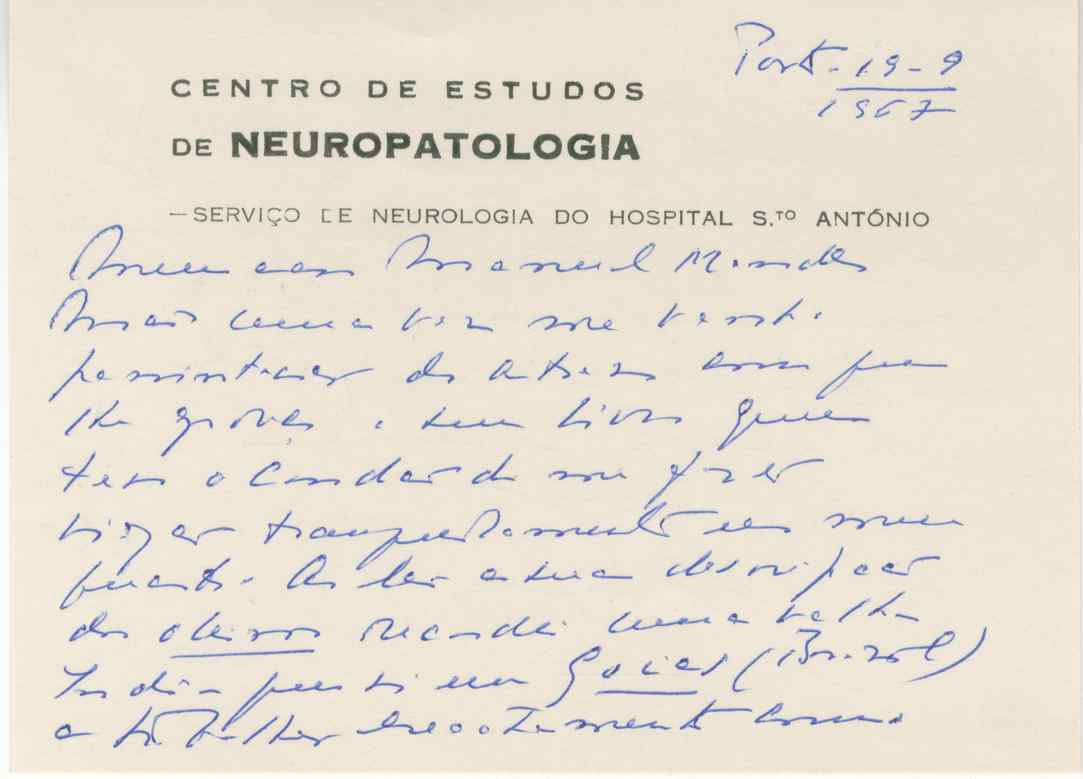 Porto - 19-9
1967
CENTRO DE ESTUDOS
DE NEUROPATOLOGIA
— SERVIÇO DE NEUROLOGIA DO HOSPITAL S.TO ANTÓNIO
Meu caro Manuel Mendes
Mais uma vez me venho
penitenciar do atraso com que
lhe o seu livro que
tem o condão de me fazer
viajar tranquilamente em meu
quarto. Ao ler a sua descripção
dos oleiros recordei uma velha
India que vi em Goias (Brasil)
a trabalhar exactamente como